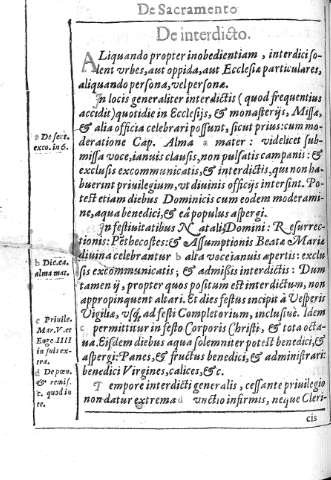 De Sacramento
De interdicto.
ALiquando propter inobedientiam, interdici so-
lent vrbes, aut oppida, aut Ecclesiæ particulares,
aliquando persona, vel personæ.
In locis generaliter interdictis (quod frequentius
accidit) quotidie in Ecclesijs, & monasterijs, Missa,
& alia officia celebrari possunt, sicut prius: cum mo-
deratione Cap. Alma a mater: videlicet sub-
missa voce, ianuis clausis, non pulsatis campanis: &
exclusis excommunicatis, & interdictis, qui non ha-
buerint priuilegium, vt diuinis officijs intersint. Po-
test etiam diebus Dominicis cum eodem moderami-
ne, aqua benedici, & ea populus aspergi.
In festiuitatibus Natalis Domini: Resurrec-
tionis: Penthecostes: & Assumptionis Beatæ Mariæ
diuina celebrantur b alta voce ianuis apertis: exclu
sis excommunicatis; & admissis interdictis: Dum
tamen ij, propter quos positum est interdictum, non
appropinquent altari. Et dies festus incipit à Vesperis
Vigiliæ, vsq; ad festi Completorium, inclusiuè. Idem
c permittitur in festo Corporis Christi, & tota octa-
ua. Eisdem diebus aqua solemniter potest benedici, &
aspergi: Panes, & fructus benedici, & administrari:
benedici Virgines, calices, & c.
Tempore interdicti generalis, cessante priuilegio
non datur extrema d vnctio infirmis, neque Cleri-
cis
a De sect.
exco. in 6.
b Dic. ca.
alma mat.
c Priuile.
Mar. V. et
Euge. IIII
in fuis extra.
d De pœn.
& remis.
c. quod in
te.